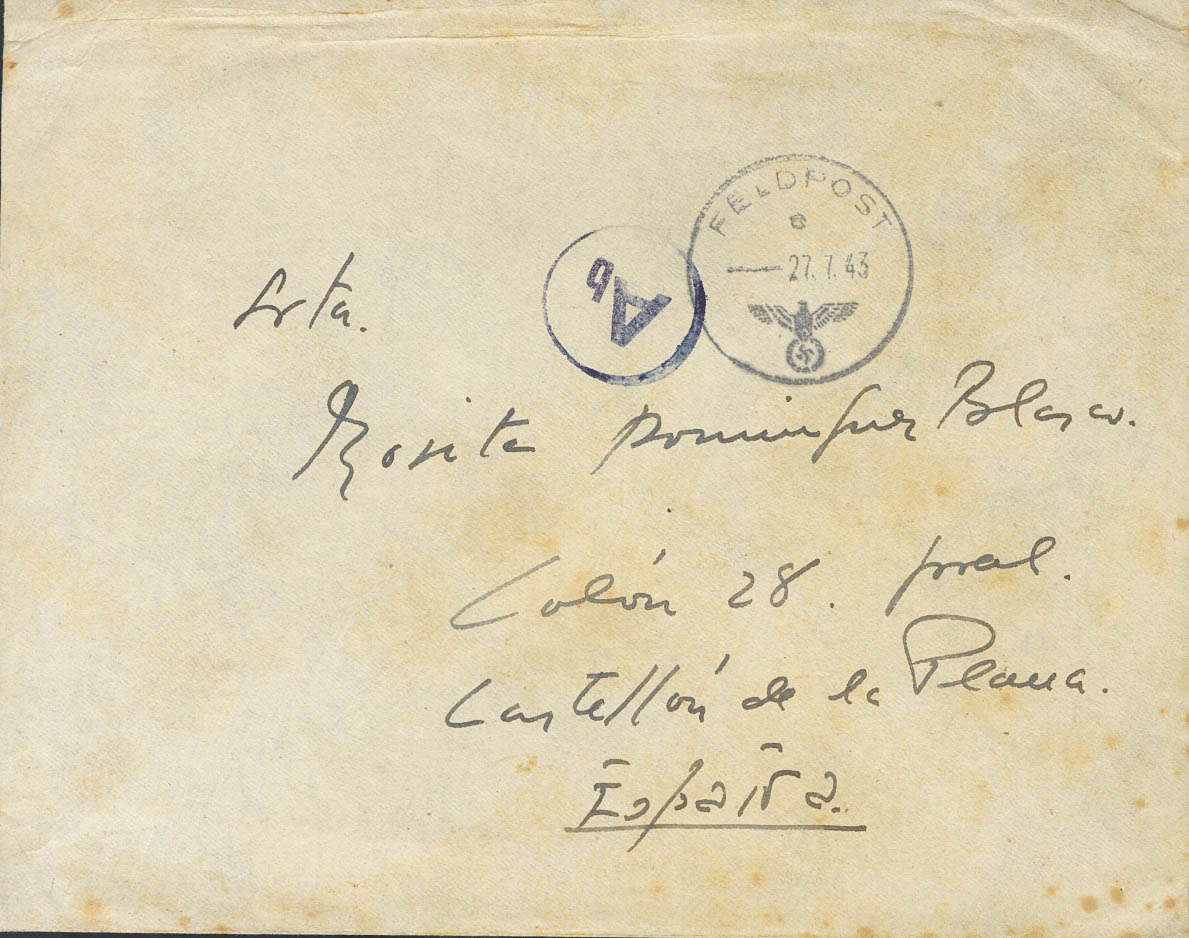 FELDPOST
e
27.7.43
Ab
Srta.
Rosita Dominguez Blasco.
Colón 28. pral.
Castellón de la Plana.
España.